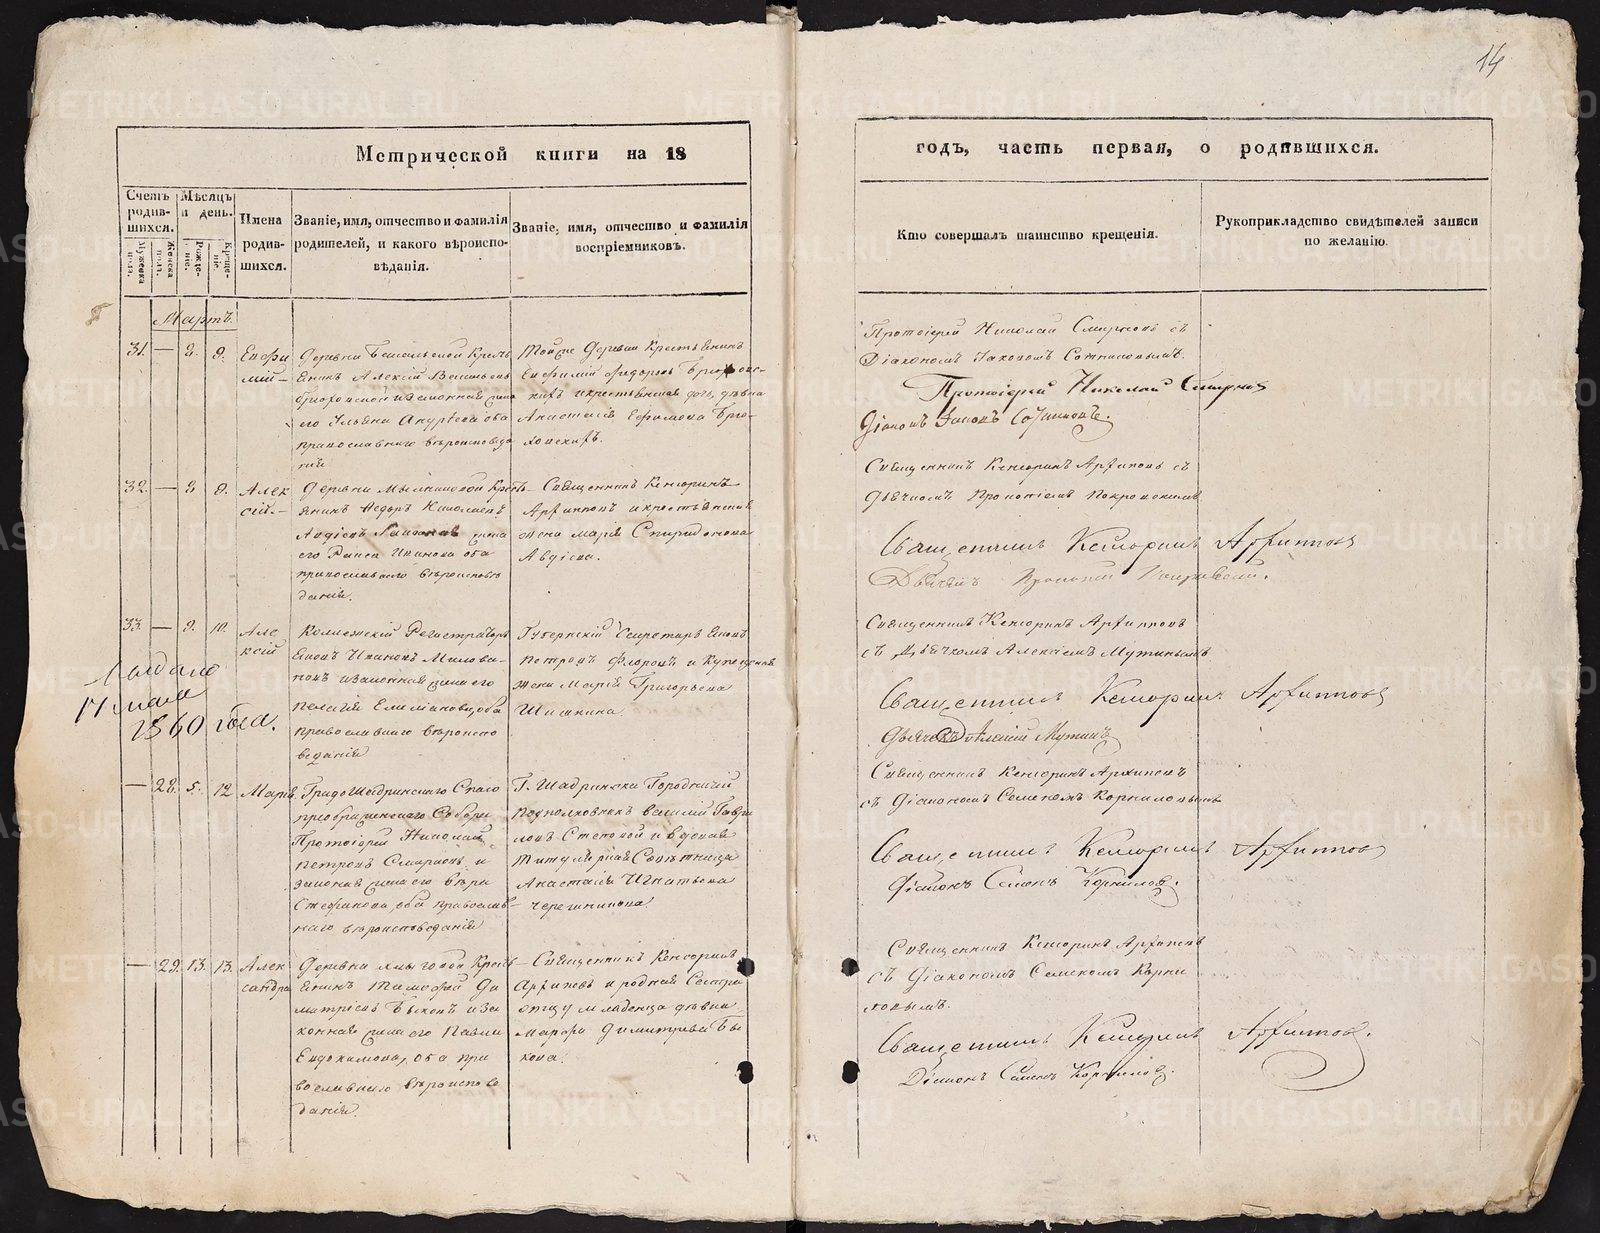 14
Метрической книги на 18
годъ, часть первая, о родившихся.
Счетъ родив-
шихся.
Мужеска пола.
Женска пола.
Мѣсяцъ
и день.
Рожде-
ніе.
Креще-
ніе.
Имена
родив-
шихся.
Званіе, имя, отчество и фамилія
родителей, и какого вѣроиспо-
вѣданія.
Званіе, имя, отчество и фамилія
воспріемниковъ.
Кто совершалъ таинство крещенія.
Рукоприкладство свидѣтелей записи
по желанію.
Мартъ.
31. — 8. 9. Ефи
мій —
Деревни кресть
янинъ Алексій Васильевъ
и законная жена
его Ульяна Андреева оба
православнаго вѣроисповѣда
нія
Тойже деревни крестьянинъ
Ефимій Федоровъ
и крестьянская дочь дѣвка
Анастасія Ефимова Брю-
ховскихъ.
Протоіерей Николай Смирновъ съ
Діакономъ Іаковомъ
Протоіерей Николай Смирновъ
Діаконъ Іаковъ
32. — 8 9. Алек
сій. —
Деревни Мыльниковой Кресть-
янинъ Федоръ Николаевъ
Авдѣевъ законная жена
его Раиса Иванова оба
православнаго вѣроисповѣ
данія.
Священникъ Кенсоринъ
Архиповъ и крестьянская
жена Марія Спиридонова
Авдѣева.
Священникъ Кенсоринъ Архиповъ съ
Дьячкомъ Прокопіемъ Покровскимъ
Священникъ Кенсоринъ Архиповъ
Дьячекъ Прокопій Покровскій.
33. — 9. 10. Але
ксій
Коллежскій Регистраторъ
Іаковъ Ивановъ Милова-
новъ и законная жена его
Пелагія оба
православнаго вѣроиспо
веданія
Губернскій Секретарь Іаковъ
Петровъ Флоровъ и Купецкая
жена Марія Григорьева
Шишкина.
Священникъ Кенсоринъ Архиповъ
съ Дьячкомъ Алексіемъ Мутинымъ
Священникъ Кенсоринъ Архиповъ
Дьячекъ Алексій Мутинъ
17 мая
1860 года.
— 28. 5. 12 Марія
Градо Шадринскаго Спасо
преображенскаго Собора
Протоіерей Николай
Петровъ Смирновъ и
законная жена его Вѣра
Стефанова, оба православ-
наго вѣроисповѣданія
Г. Шадринска Городничій
Подполковникъ Василій Гаври
ловъ Степовой и вдовая
Титулярная Совѣтница
Анастасія Игнатьева
Черешникова.
Священникъ Кенсоринъ Архиповъ
съ Діакономъ Семеномъ Корниловымъ
Священникъ Кенсоринъ Архиповъ
Діаконъ Семенъ Корниловъ.
— 29. 13. 13. Алек
сандра
Деревни Кресть-
янинъ Тимофей Ди
митріевъ Быковъ и за
конная жена его Павла
Евдокимова, оба пра
вославнаго вѣроиспове
данія.
Священникъ Кенсоринъ
Архиповъ и родная Сестра
отцу младенца дѣвка
Марфа Димитріева Бы
кова.
Священникъ Кенсоринъ Архиповъ
съ Діакономъ Семеномъ Корни
ловымъ.
Священникъ Кенсоринъ Архиповъ.
Діаконъ Семенъ Корниловъ.
METRIKI.GASO-URAL.RU